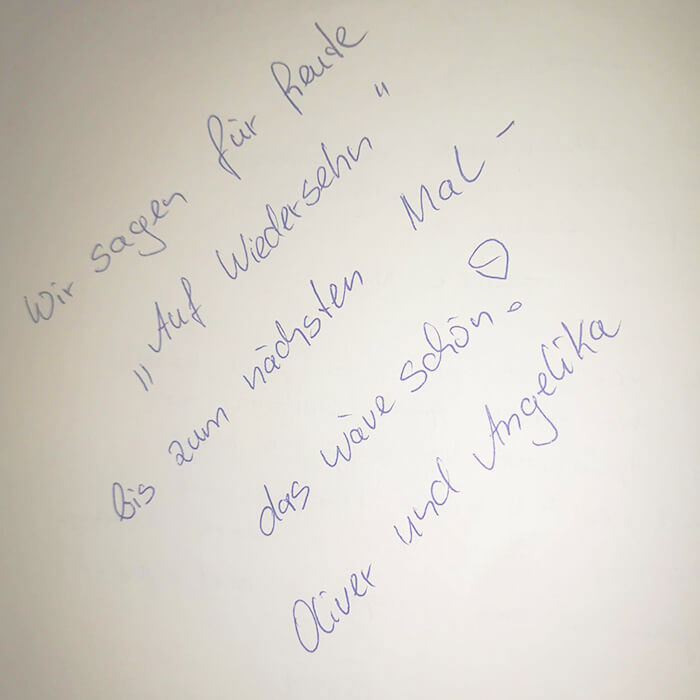 Wir sagen für heute
"Auf Wiedersehn"
bis zum nächsten Mal -
das wäre schön!
Oliver und Angelika